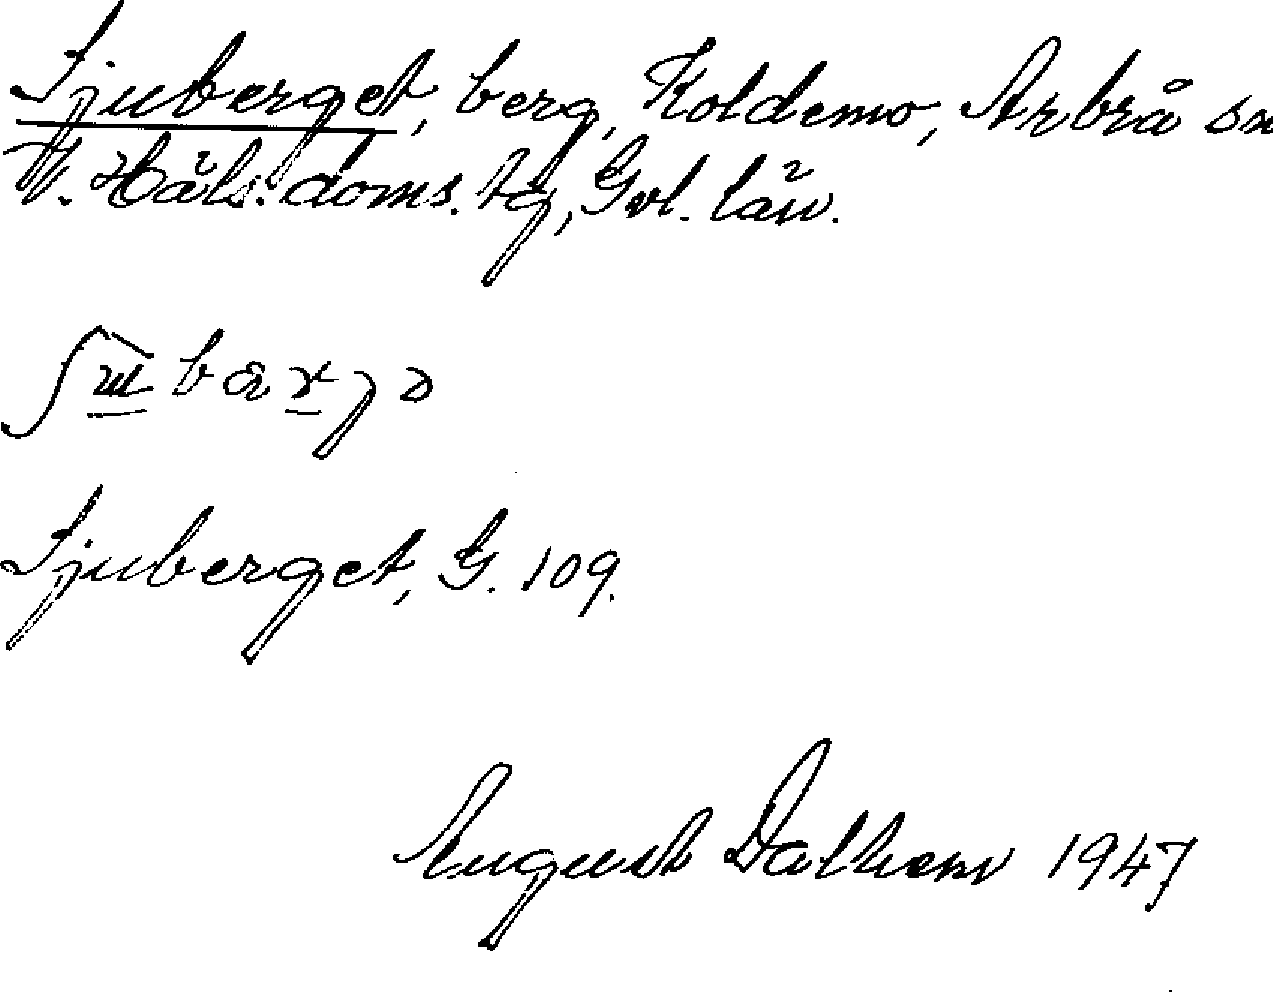 Sjuberget, berg, Koldemo, Arbrå sn
V. Häls. doms. tg, Gvl. län.
Sjuberget, G. 109.
August Dalhem 1947